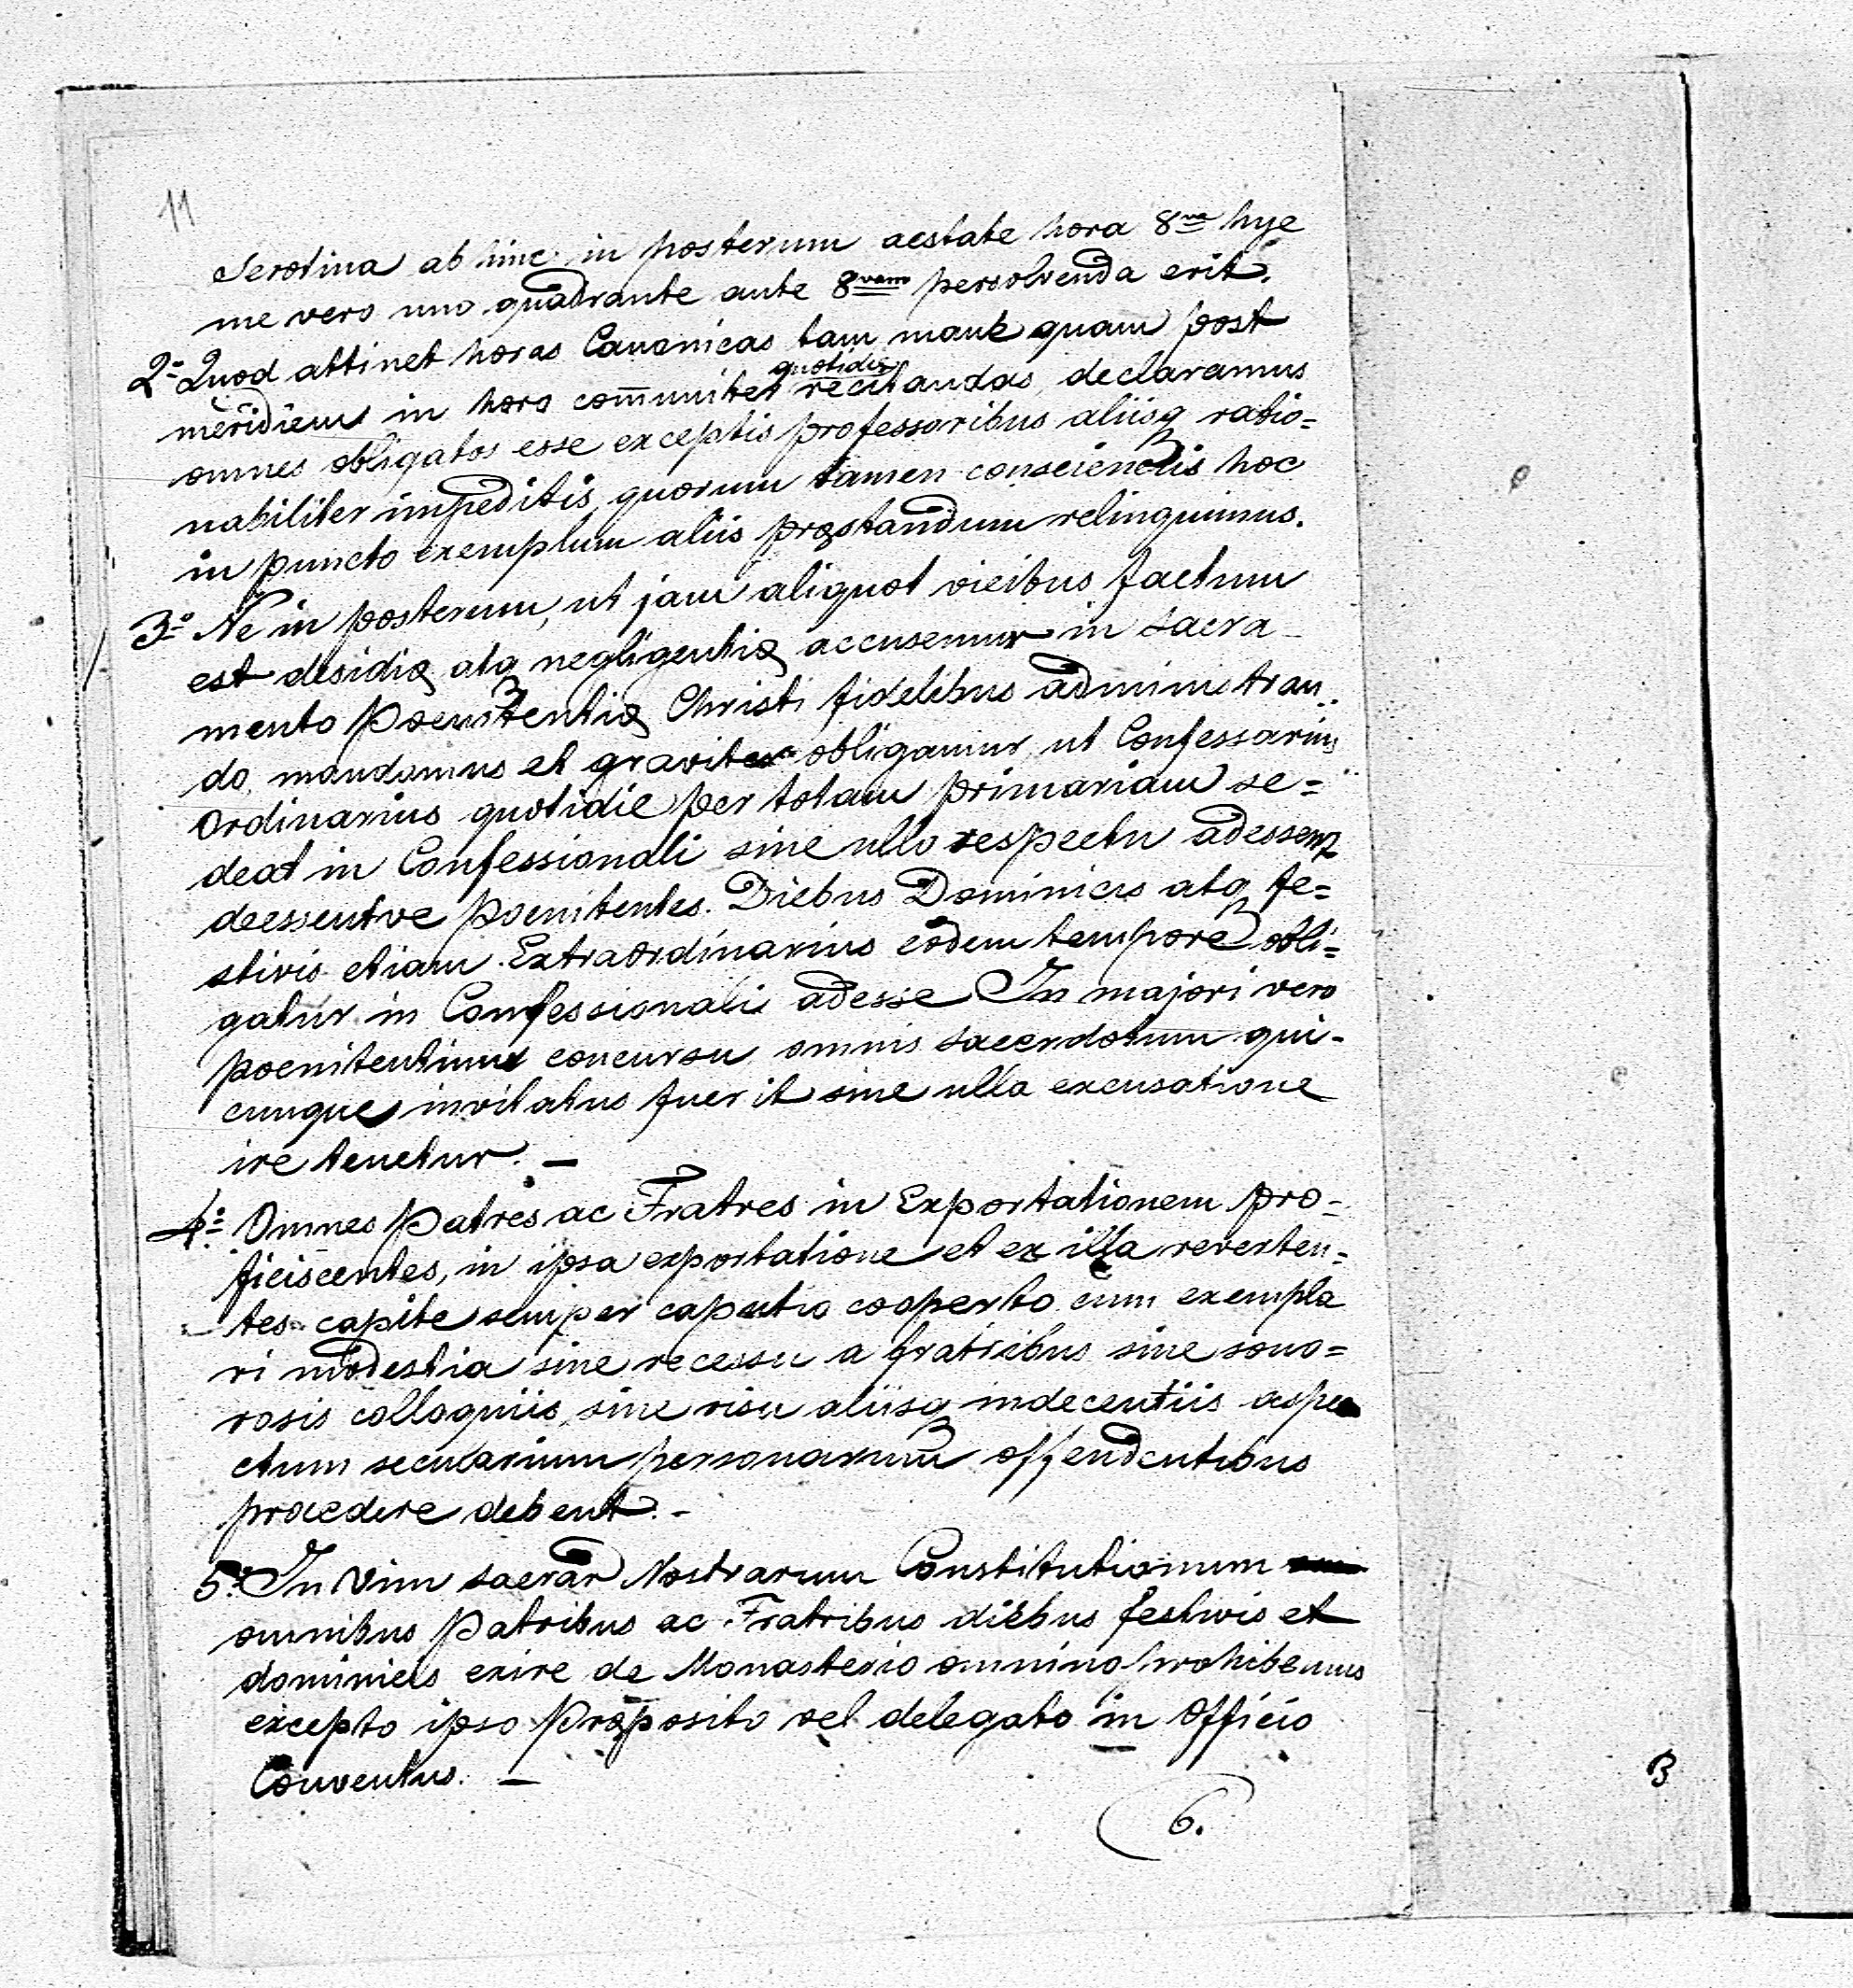 11
Serotina ab hinc in posterum aestate hora 8va hye
me vero uno quadrante ante 8vam persolvenda erit.
2o Quod attinet horas Canonicas tam mane quam post
meridiem in horo com̄uniter quotidie recitandas, declaramus
omnes obligatos esse exceptis professoribus aliisq ratio=
nabiliter impeditis, quorum tamen conscienciis hoc
in puncto exemplum aliis pręstandum relinquimus.
3o Ne in posterum, ut jam aliquot vicibus factum
est desidię atq negligentię accusemur in sacra-
mento poenitentię Christi fidelibus administran
do, mandamus et graviter obligamur, ut Confessarius
Ordinarius quotidie per totam primariam se=
deat in Confessionali sine ullo respectu adessent
deessentve poenitentes. Diebus Dominicis atq fe=
stivis etiam Extraordinarius eodem tempore obli=
gatur in Confessionali adesse In majori vero
poenitentium concursu omnis sacerdotum qui-
cunque invitatus fuerit sine ulla excusatione
ire tenetur. —
4o Omnes Patres ac Fratres in Exportationem pro-
ficiscentes, in ipsa exportatione et ex illa reverten=
tes capite semper caputio cooperto cum exempla
ri modestia sine recessu a fratribus sine sono=
rosis colloquiis, sine risu aliisq indecentiis aspe
ctum secularium personarum offendentibus
procedere debent. -
5o In Vim sacrar Nostrarum Constitutionum
omnibus Patribus ac Fratribus diebus festivis et
dominicis exire de Monasterio omnino prohibemus
excepto ipso Pręposito vel delegato in Officio
Conventus. —
6.